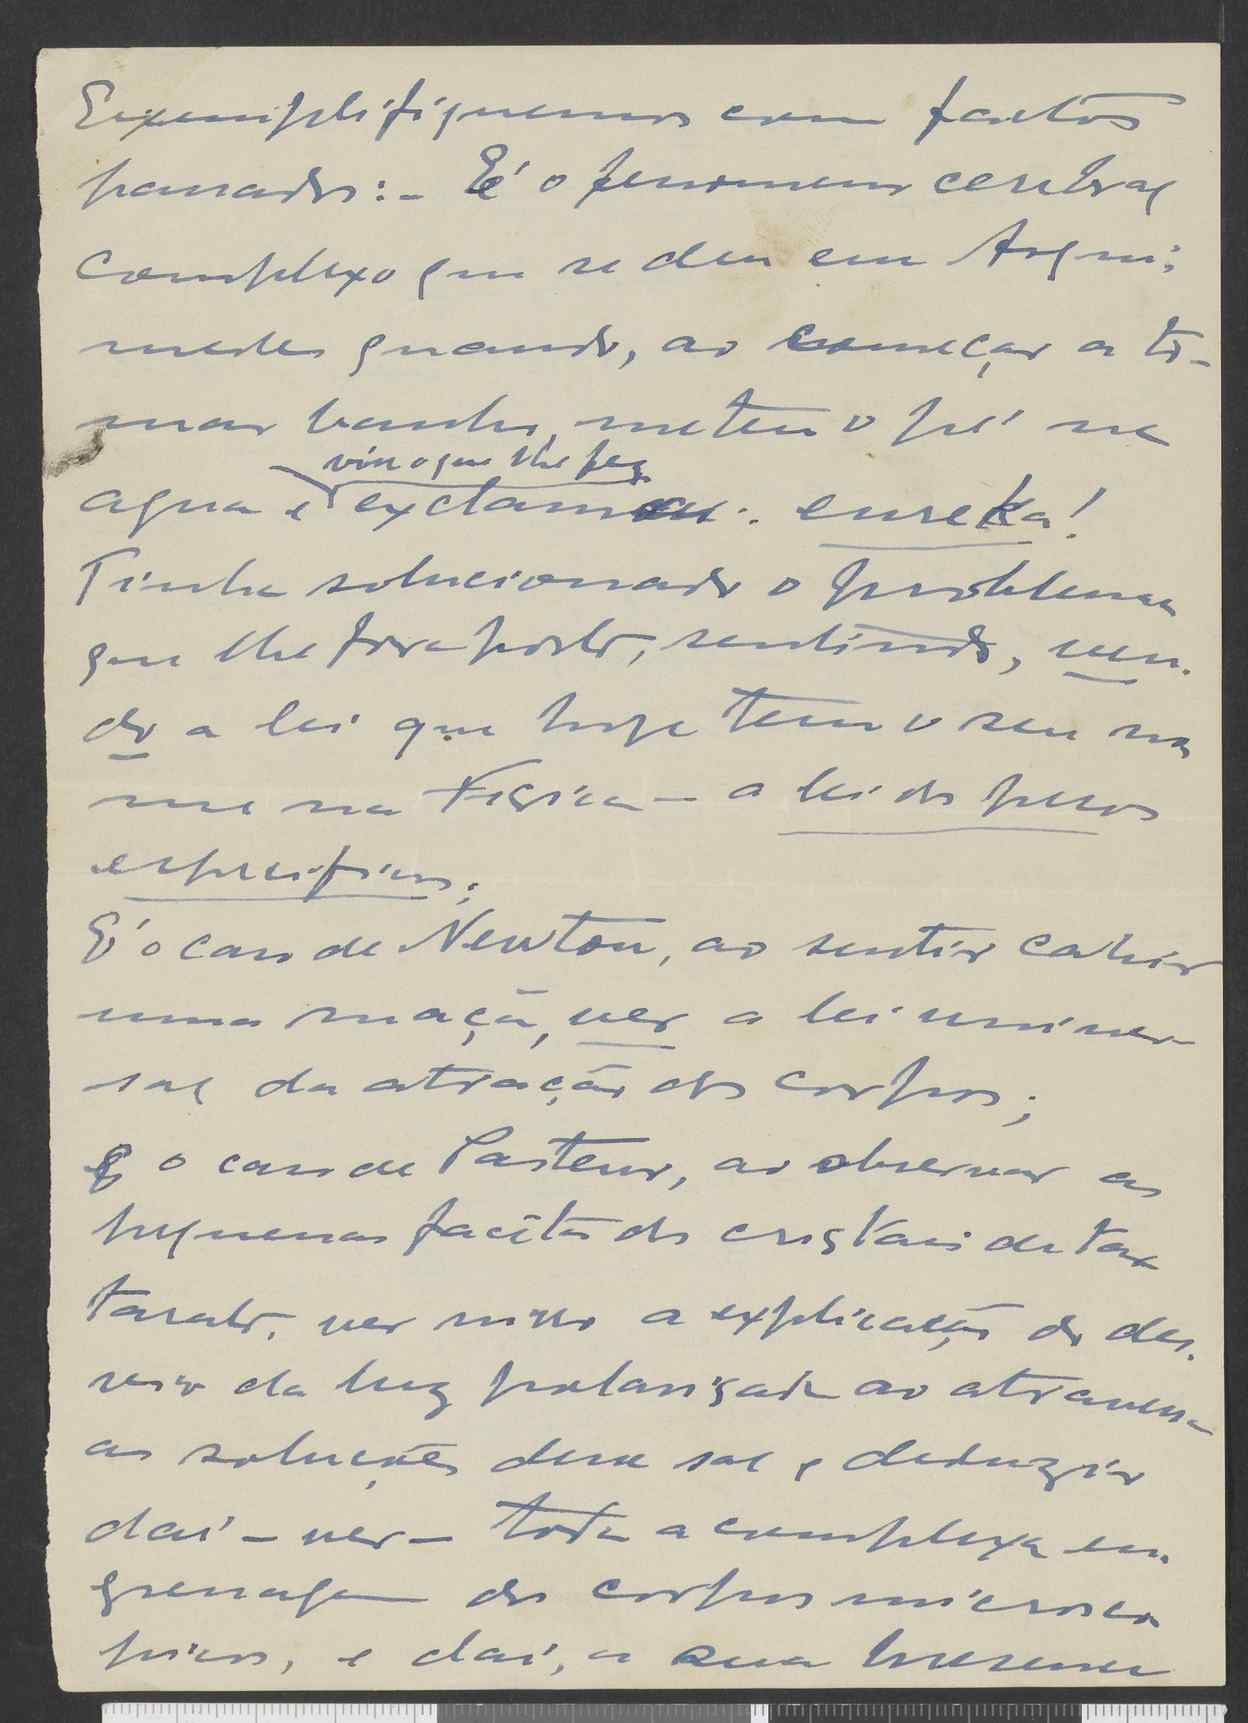 Exemplifiquemos com factos
passados:- É o fenomeno cerebral
complexo que se deu em Arqui-
medes quando, ao começar a to-
mar banho, meteu o pé na
viu o que lhe fez
agua e exclamou: eureka!
Tinha solucionado o problema
que lhe fora posto, sentindo, ven-
do a lei que hoje tem o seu no
me na Fisica - a lei dos pesos
especificos;
É o caso de Newton, ao sentir cahir
uma maçã, ver a lei univer-
sal da atração dos corpos;
É o caso de Pasteur, ao observar as
pequenas facêtas dos cristais de tar
tarato, ver nisso a explicação do des-
vio da luz polarisada ao atravessar
as soluções desse sal e deduzir
daí - ver - toda a complexa en-
grenagem dos corpos microsco
picos, e daí, a sua presença